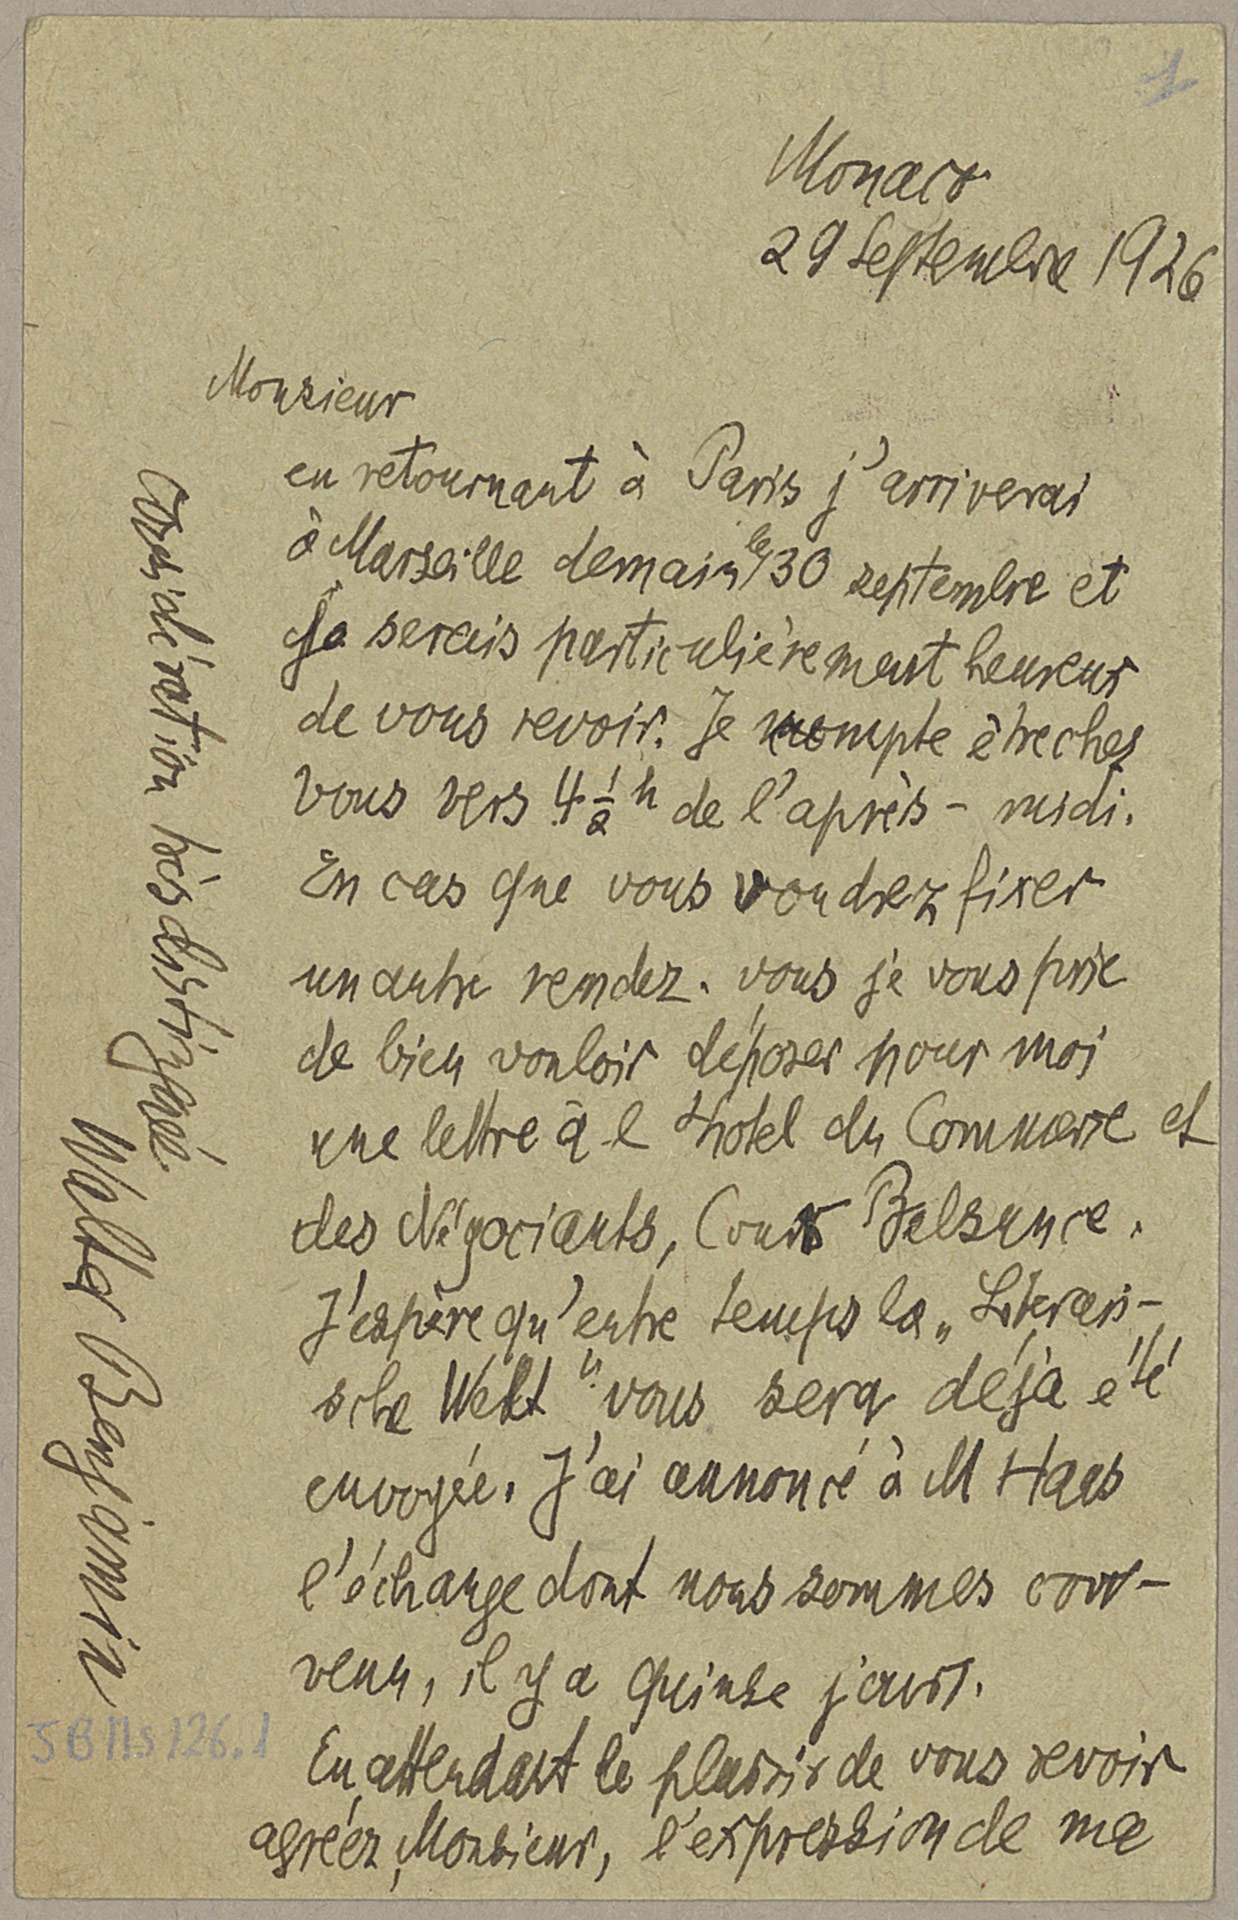 1
Monaco
29 Septembre 1926
Monsieur
en retournant à Paris j'arriverai
à Marseille demain le 30 septembre et
je serais particulièrement heureux
de vous revoir. Je compte être chez
vous vers 4 1/2 h de l'après-midi.
En cas que vous voudrez fixer
un autre rendez-vous je vous prie
de bien vouloir déposer pour moi
une lettre à l'hotel du Commerce et
des Négociants, Cours Belsunce.
J'espère qu'entre temps la „Literari-
sche Welt" vous sera déjà été
envoyée. J'ai annoncé à M Haas
l'échange dont nous sommes con-
venu, il y a quinze jours.
En attendant le plaisir de vous revoir
agréez, Monsieur, l'expression de ma
considération très distinguée
Walter Benjamin
JB Ms 126.1